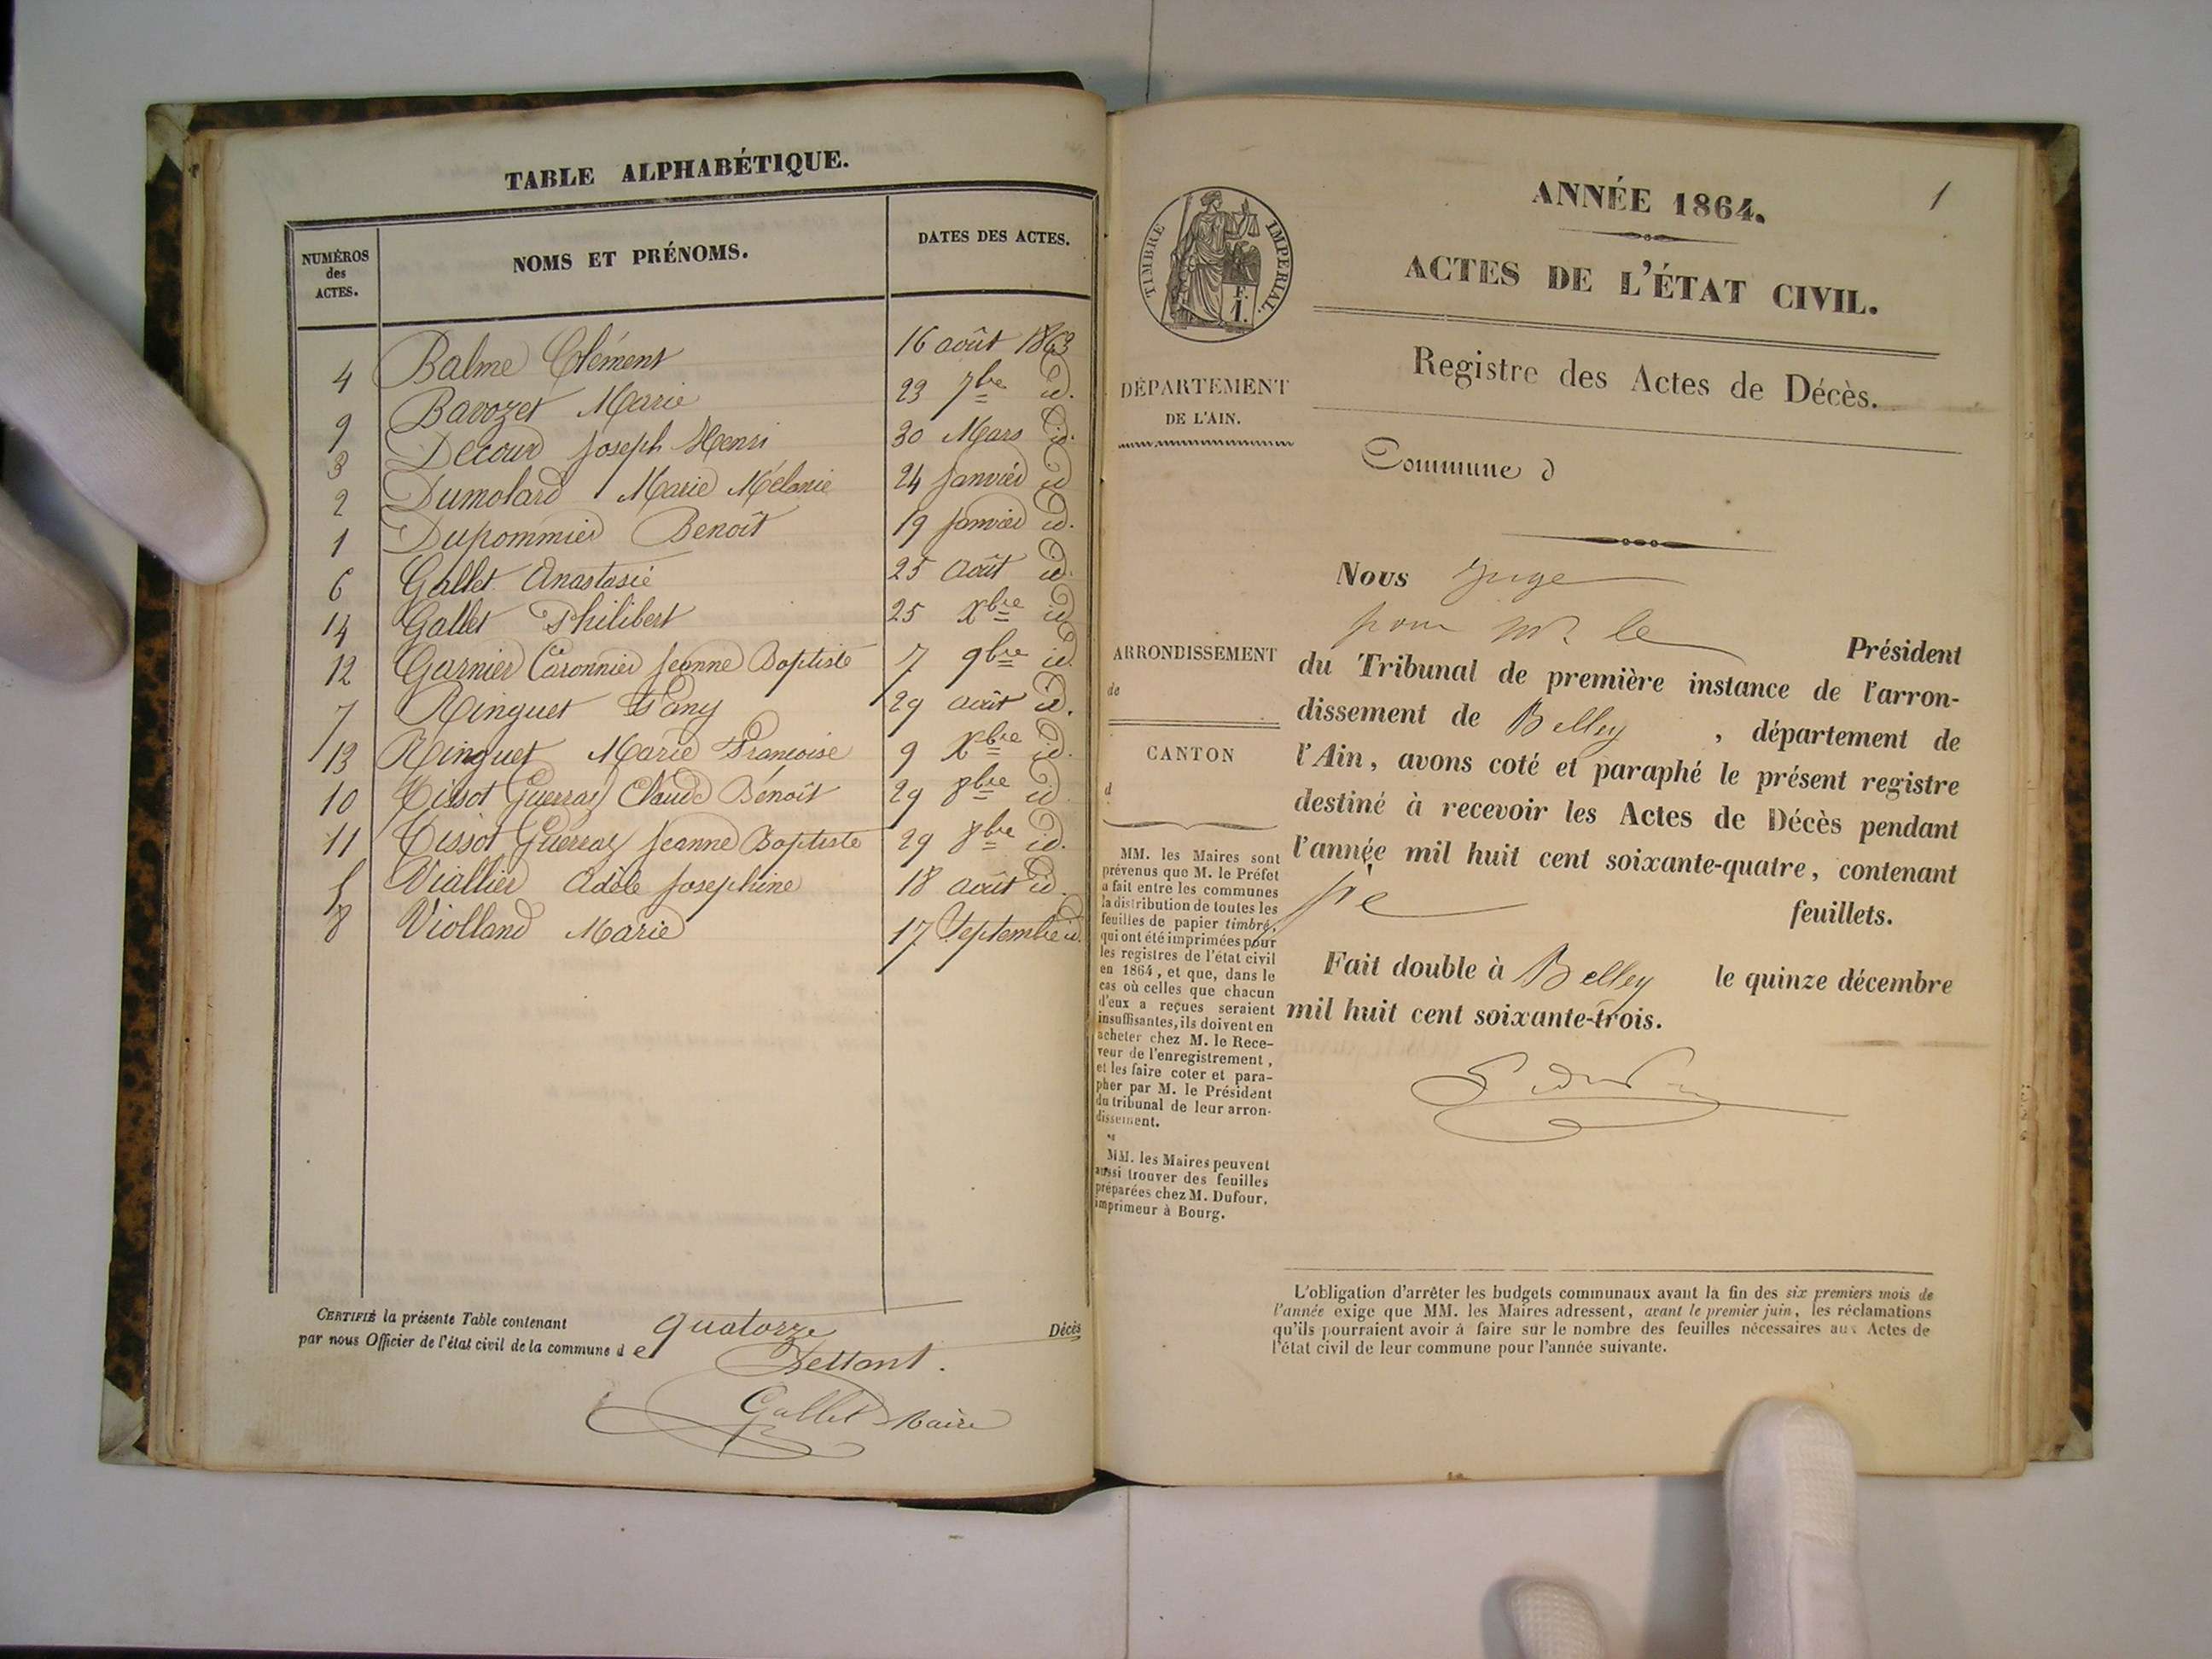 TABLE ALPHABÉTIQUE.
NUMÉROS des ACTES. NOMS ET PRÉNOMS. DATES DES ACTES.
4 Balme Clément 16 août 1863
9 Bavozet Marie 23 7bre id.
3 Decour Joseph Henri 30 Mars id.
2 Dumolard Marie Mélanie 24 Janvier id
1 Dupommier Benoît 19 Janvier id.
6 Gallet Anastasie 25 Août id.
14 Gallet Philibert 25 Xbre id
12 Garnier Caronnier Jeanne Baptiste 7 9bre id.
7 Ringuet Fany 29 août id.
13 Ringuet Marie Françoise 9 Xbre id.
10 Tissot Guerraz Claude Benoît 29 8bre id
11 Tissot Guerraz Jeanne Baptiste 29 8bre id.
5 Viallier Adèle Josephine 18 août id.
8 Violland Marie 17 Septembre id.
CERTIFIÉ la présente Table contenant quatorze Décès
par nous Officier de l'état civil de la commune de
Gallet Maire
1
ANNÉE 1864.
ACTES DE L'ÉTAT CIVIL.
TIMBRE IMPÉRIAL.
F.
1.
Registre des Actes de Décès.
DÉPARTEMENT
DE L'AIN.
Commune d
ARRONDISSEMENT
de
CANTON
d
MM. les Maires sont
prévenus que M. le Préfet
a fait entre les communes
la distribution de toutes les
feuilles de papier timbré,
qui ont été imprimées pour
les registres de l'état civil
en 1864, et que, dans le
cas où celles que chacun
d'eux a reçues seraient
insuffisantes, ils doivent en
acheter chez M. le Rece-
veur de l'enregistrement,
et les faire coter et para-
pher par M. le Président
du tribunal de leur arron-
dissement.
MM. les Maires peuvent
aussi trouver des feuilles
préparées chez M. Dufour,
imprimeur à Bourg.
Nous Juge
pour Mr le Président
du Tribunal de première instance de l'arron-
dissement de Belley, département de
l'Ain, avons coté et paraphé le présent registre
destiné à recevoir les Actes de Décès pendant
l'année mil huit cent soixante-quatre, contenant
feuillets.
Fait double à Belley le quinze décembre
mil huit cent soixante-trois.
L'obligation d'arrêter les budgets communaux avant la fin des six premiers mois de
l'année exige que MM. les Maires adressent, avant le premier juin, les réclamations
qu'ils pourraient avoir à faire sur le nombre des feuilles nécessaires aux Actes de
l'état civil de leur commune pour l'année suivante.